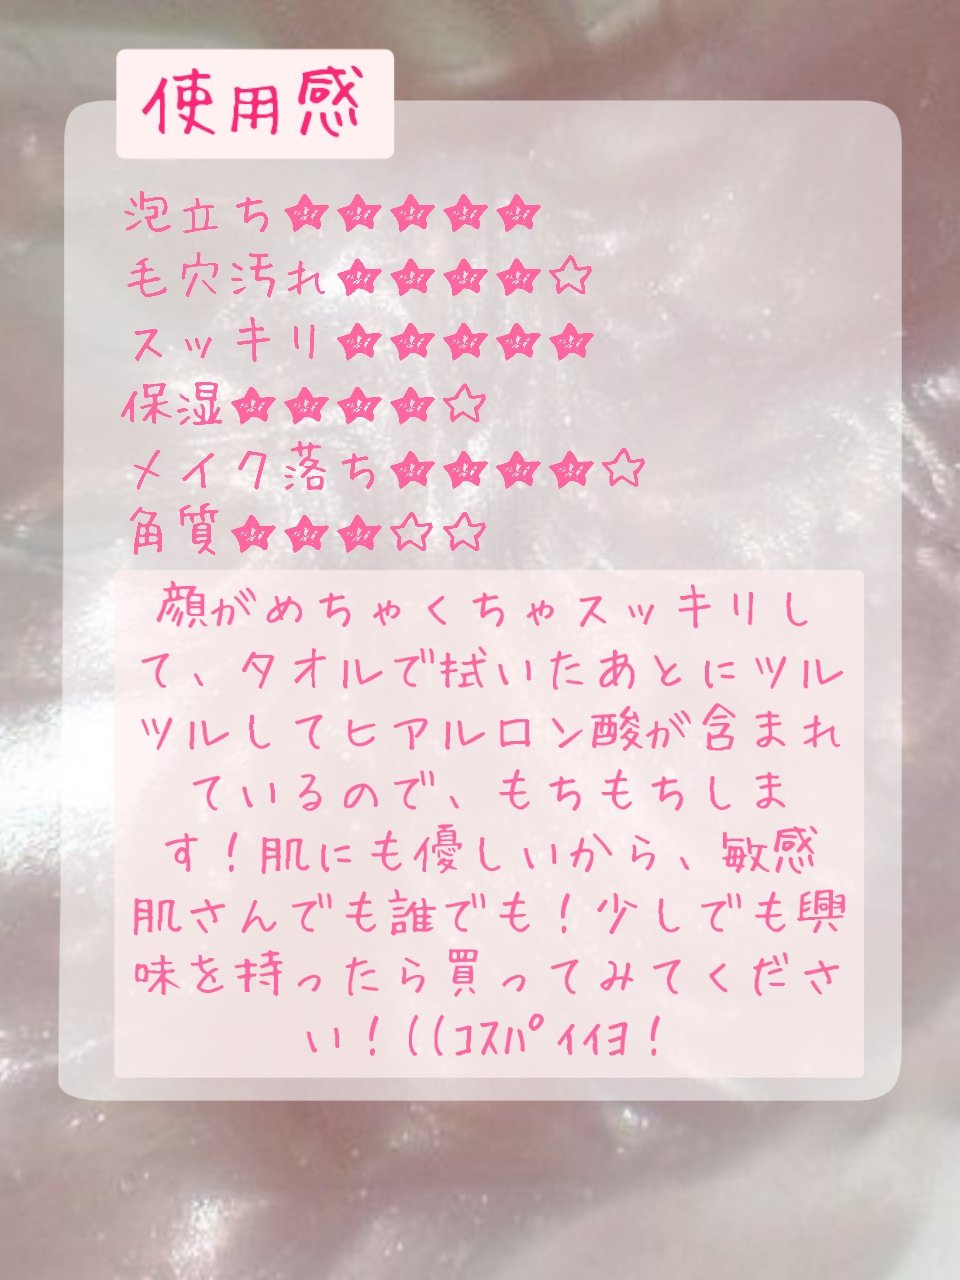 使用感
泡立ち★★★★★
毛穴汚れ★★★★☆
スッキリ★★★★★
保湿★★★★☆
メイク落ち★★★★☆
角質★★★☆☆
顔がめちゃくちゃスッキリし
て、タオルで拭いたあとにツル
ツルしてヒアルロン酸が含まれ
ているので、もちもちしま
す！肌にも優しいから、敏感
肌さんでも誰でも！少しでも興
味を持ったら買ってみてくださ
い！((ｺｽﾊﾟｲｲﾖ！